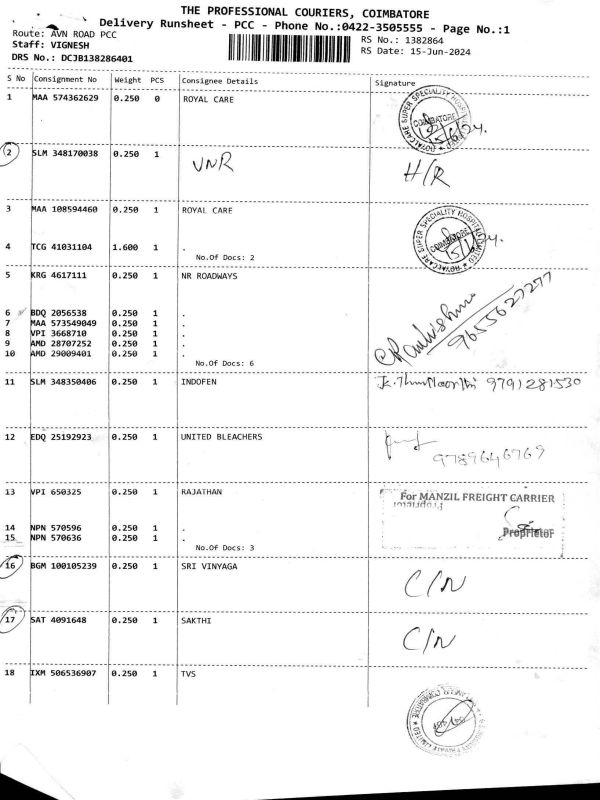 THE PROFESSIONAL COURIERS, COIMBATORE
Delivery Runsheet - PCC - Phone No.:0422-3505555 - Page No.:1
Route: AVN ROAD PCC
Staff: VIGNESH
DRS No.: DCJB138286401
RS No.: 1382864
RS Date: 15-Jun-2024
S No Consignment No Weight PCS Consignee Details Signature
1 MAA 574362629 0.250 0 ROYAL CARE
ROYALCARE SUPER SPECIALITY HOSPITAL LIMITED COIMBATORE
15/6/24.
2 SLM 348170038 0.250 1 VNR H/R
3 MAA 108594460 0.250 1 ROYAL CARE
ROYALCARE SUPER SPECIALITY HOSPITAL LIMITED COIMBATORE
15/6/24.
4 TCG 41031104 1.600 1 .
No.Of Docs: 2
5 KRG 4617111 0.250 1 NR ROADWAYS
9655627277
6 BDQ 2056538 0.250 1 .
7 MAA 573549049 0.250 1 .
8 VPI 3668710 0.250 1 .
9 AMD 28707252 0.250 1 .
10 AMD 29009401 0.250 1 .
No.Of Docs: 6
11 SLM 348350406 0.250 1 INDOFEN 9791281530
12 EDQ 25192923 0.250 1 UNITED BLEACHERS
9789646769
13 VPI 650325 0.250 1 RAJATHAN
For MANZIL FREIGHT CARRIER
Proprietor
14 NPN 570596 0.250 1 .
15 NPN 570636 0.250 1 .
Proprietor
No.Of Docs: 3
16 BGM 100105239 0.250 1 SRI VINYAGA
C/N
17 SAT 4091648 0.250 1 SAKTHI
C/N
18 IXM 506536907 0.250 1 TVS